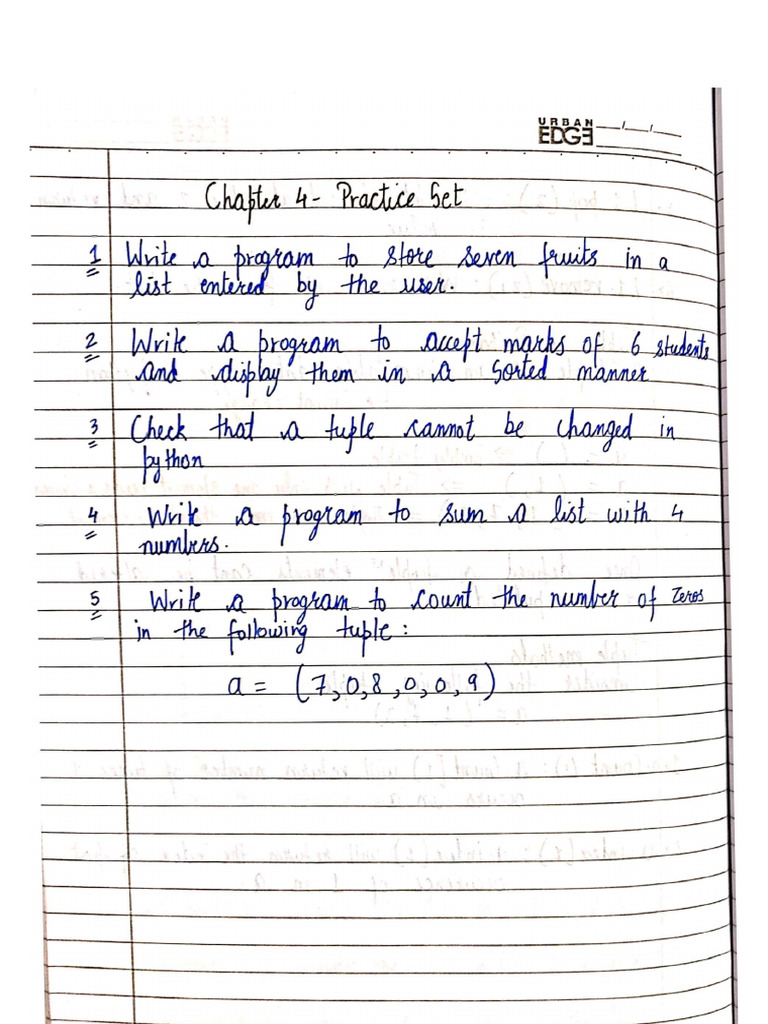 URBAN
EDGE __/__/__
Chapter 4 - Practice Set
1 Write a program to store seven fruits in a
list entered by the user.
2 Write a program to accept marks of 6 students
and display them in a sorted manner
3 Check that a tuple cannot be changed in
python
4 Write a program to sum a list with 4
numbers.
5 Write a program to count the number of zeros
in the following tuple:
a = (7,0,8,0,0,9)